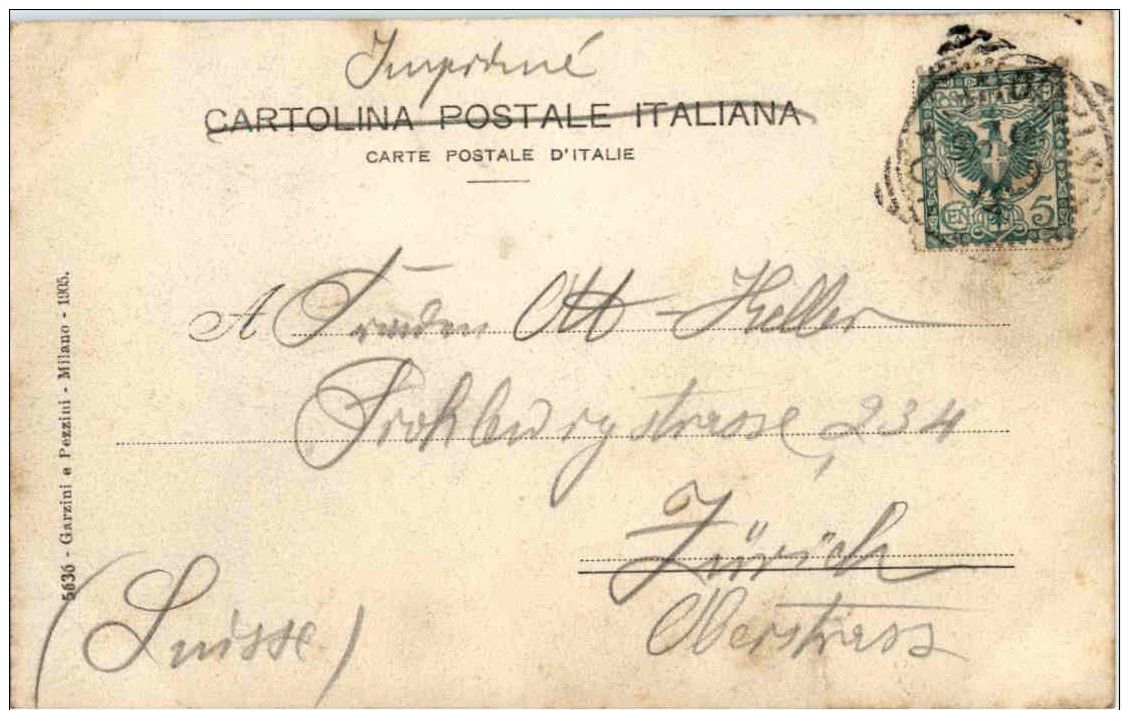 Imprimé
CARTOLINA POSTALE ITALIANA
CARTE POSTALE D'ITALIE
CENT. 5
A Ott-Keller
Frohburgstrasse 234
Zürich
Oberstrass
(Suisse)
5636 - Garzini e Pezzini - Milano - 1905.